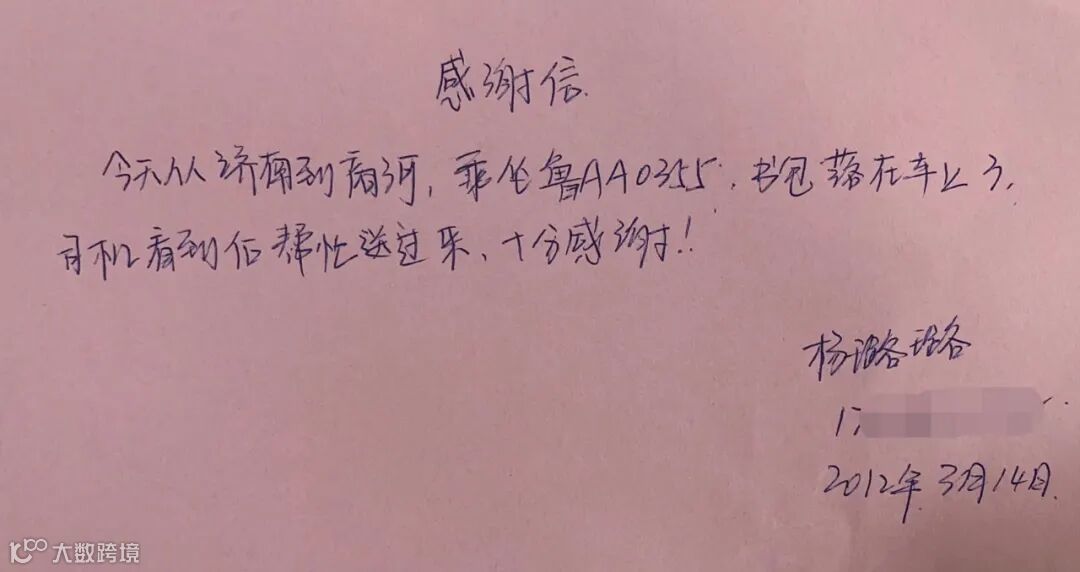 感谢信
今天从济南到商河，乘坐鲁AA0355，书包落在车上了，
司机看到后帮忙送过来、十分感谢！
杨璐璐
17
2012年3月14日
大数跨境